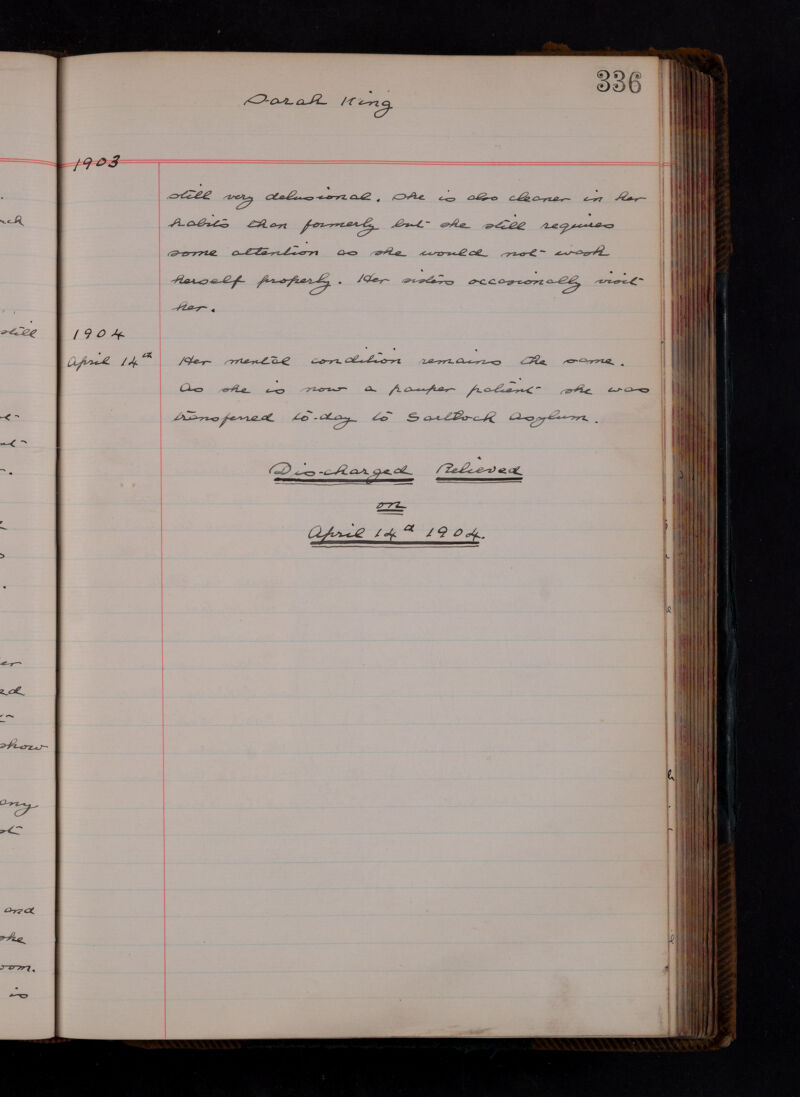 336
Sarah King
1903
still very delusional. She is also cleaner in her
habits than formerly but she still requires
some attention as she would not wash
herself properly. Her sisters occasionally visit
her.
1904
April 14th Her mental condition remains the same.
As she is now a pauper patient she was
transferred to-day to Gartloch Asylum.
Discharged Relieved
on
April 14th 1904.
still
show
any
and
she
oom.
is